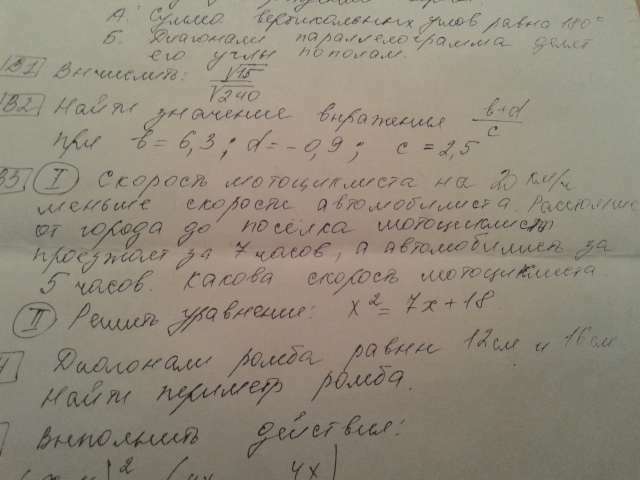 А. Сумма вертикальных углов равна 180°
Б. Диагонали параллелограмма делят
его углы пополам.
B1 Вычислить: √15/√240
B2 Найти значение выражения b+d/c
при b = 6,3; d = -0,9; c = 2,5
B3 I Скорость мотоциклиста на 20 км/ч
меньше скорости автомобилиста. Расстояние
от города до посёлка мотоциклист
проезжает за 7 часов, а автомобилист за
5 часов. Какова скорость мотоциклиста
II Решить уравнение: x² = 7x + 18.
Диагонали ромба равны 12см и 16см
Найти периметр ромба.
Выполнить действия: